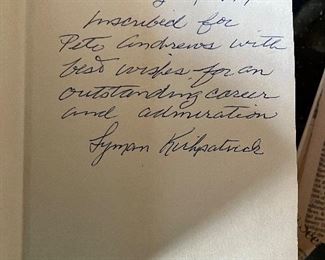 Inscribed for
Pete Andrews with
best wishes for an
outstanding career
and admiration
Lyman Kirkpatrick